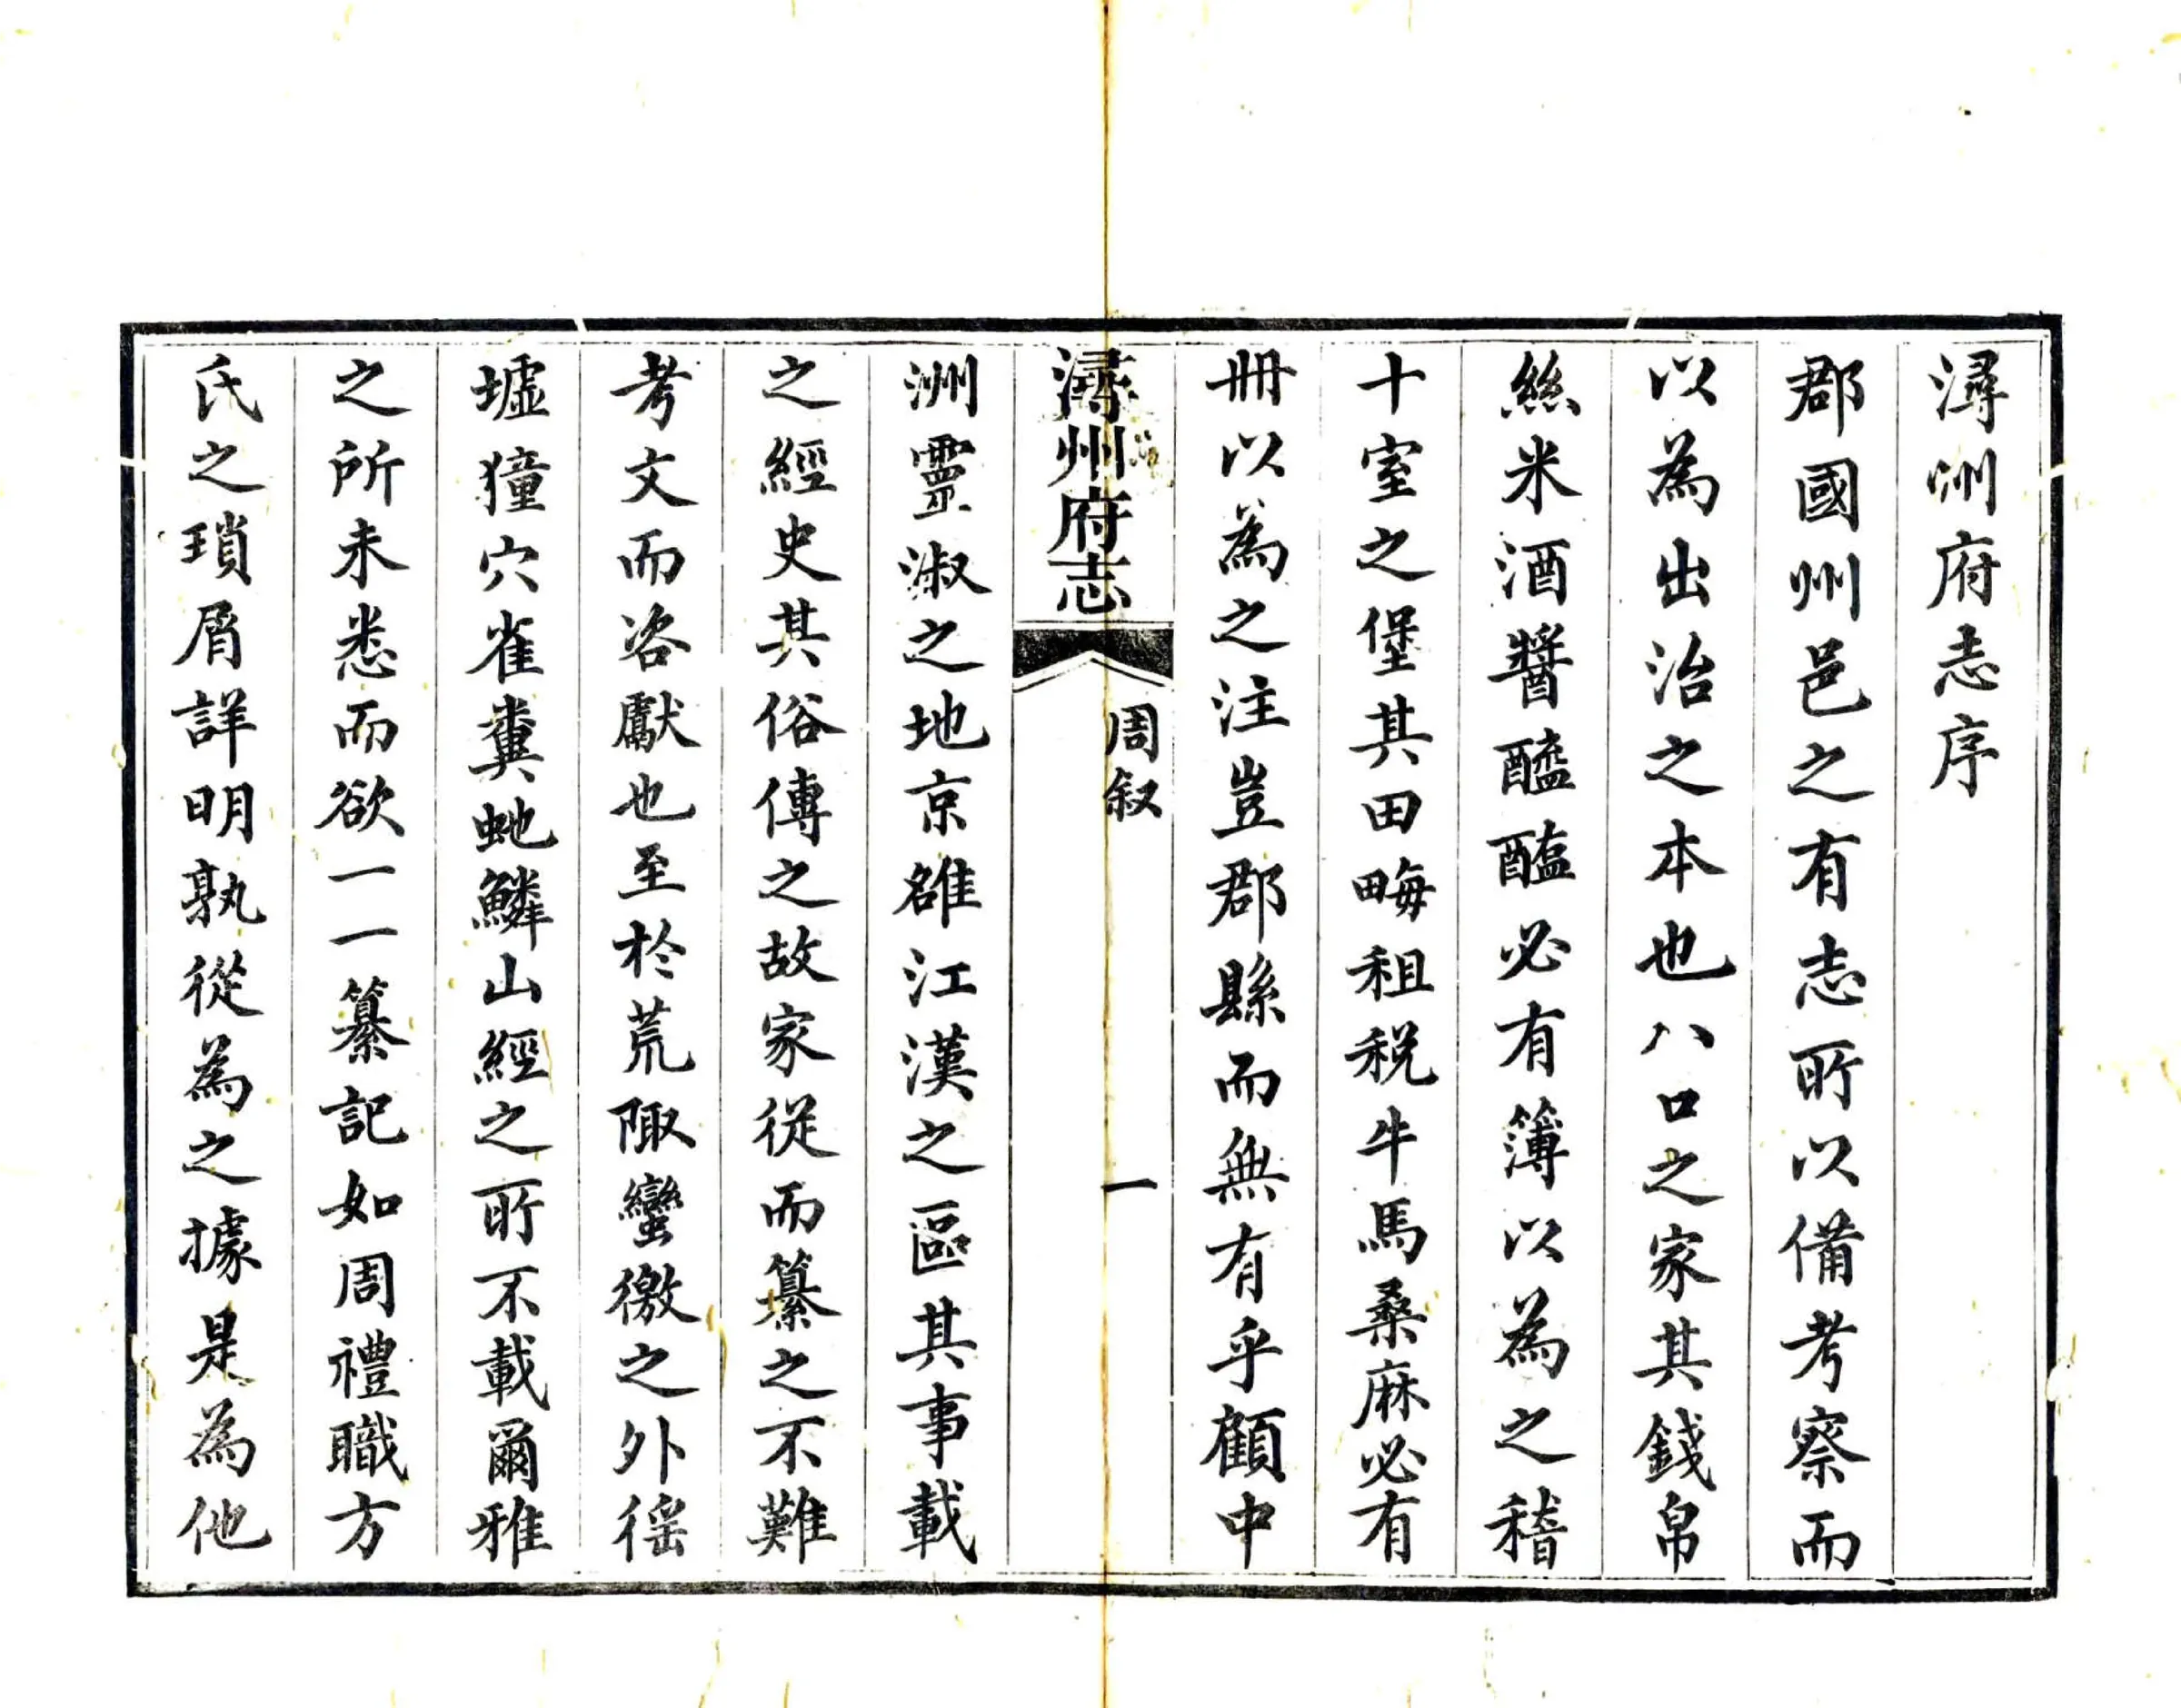 潯州府志序
郡國州邑之有志所以備考察而
以為出治之本也八口之家其錢帛
絲米酒醬醯醢必有簿以為之稽
十室之堡其田畮租税牛馬桑麻必有
冊以為之注豈郡縣而無有乎顧中
潯州府志
周叙
一
洲靈淑之地京雒江漢之區其事載
之經史其俗傳之故家從而纂之不難
考文而咨獻也至於荒陬蠻徼之外徭
墟獞穴雀糞虵鱗山經之所不載爾雅
之所未悉而欲一一纂記如周禮職方
氏之瑣屑詳明孰從為之據是為他